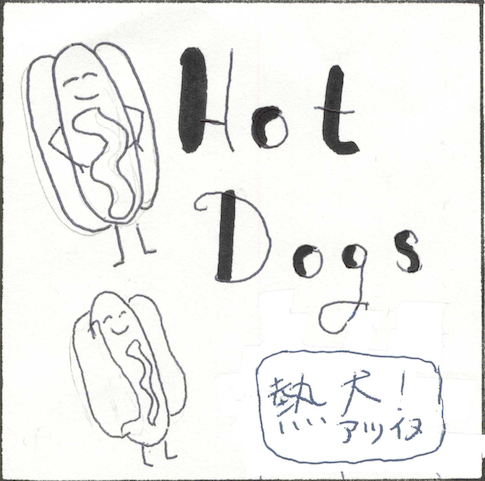 Hot
Dogs
熱犬!
アツイヌ